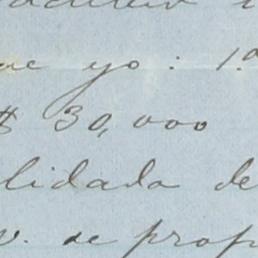 ue yo: 1.º
$ 30,000
lidada de
v. se prop